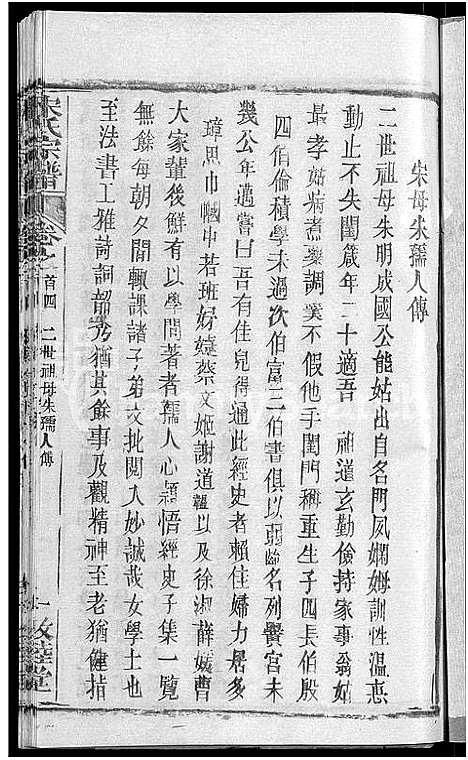 宋母朱孺人傳
二世祖母朱明成國公能姑出自名門夙嫻姆訓性溫恭
動止不失閨箴年二十適吾 祖道玄勤儉持家事翁姑
最孝姑病煮藥調羹不假他手閨門稱重生子四長伯殷
四伯倫積學未遇次伯富三伯書俱以弱齡名列黌宮未
幾公年邁嘗曰吾有佳兒得通此經史者賴佳婦力居多
璋思巾幗中若班婕蔡文姬謝道韞以及徐淑薛媛曹
大家輩後鮮有以學問著者孺人心穎悟經史子集一覽
無餘每朝夕間輒課諸子弟文批閱入妙誠哉女學士也
至法書工雅詩詞韶秀猶其餘事及觀精神至老猶健指
宋氏宗譜 卷之首四 二世祖母朱孺人傳